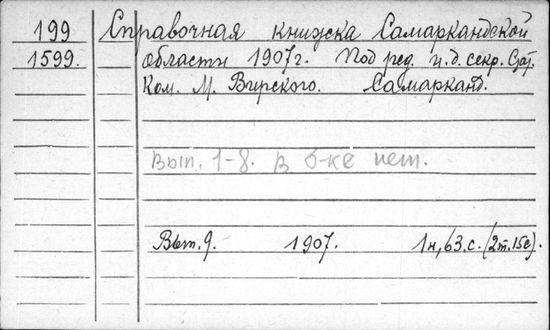 199 Справочная книжка Самаркандской
1599. области 1907г. Под ред. и.д. секр. Стат.
Ком. М. Вирского. Самарканд.
Вып. 1-8. в б-ке нет.
Вып. 9. 1907. 1н, 63.с. (2т. 15с)